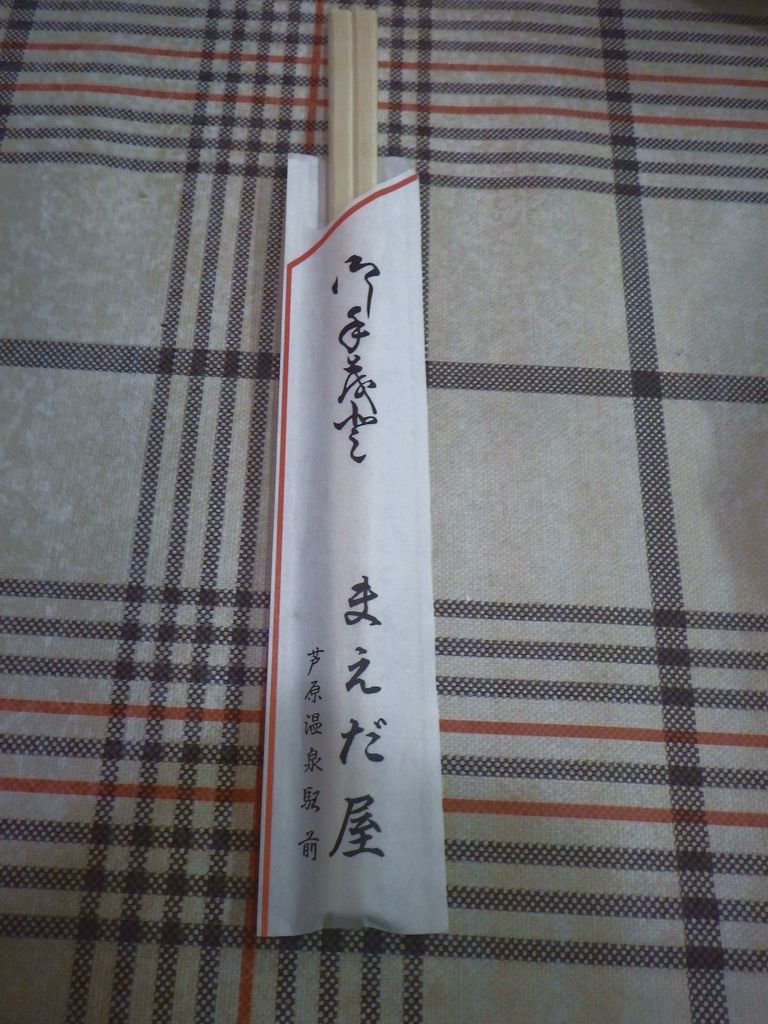 御手茂登
まえだ屋
芦原温泉駅前